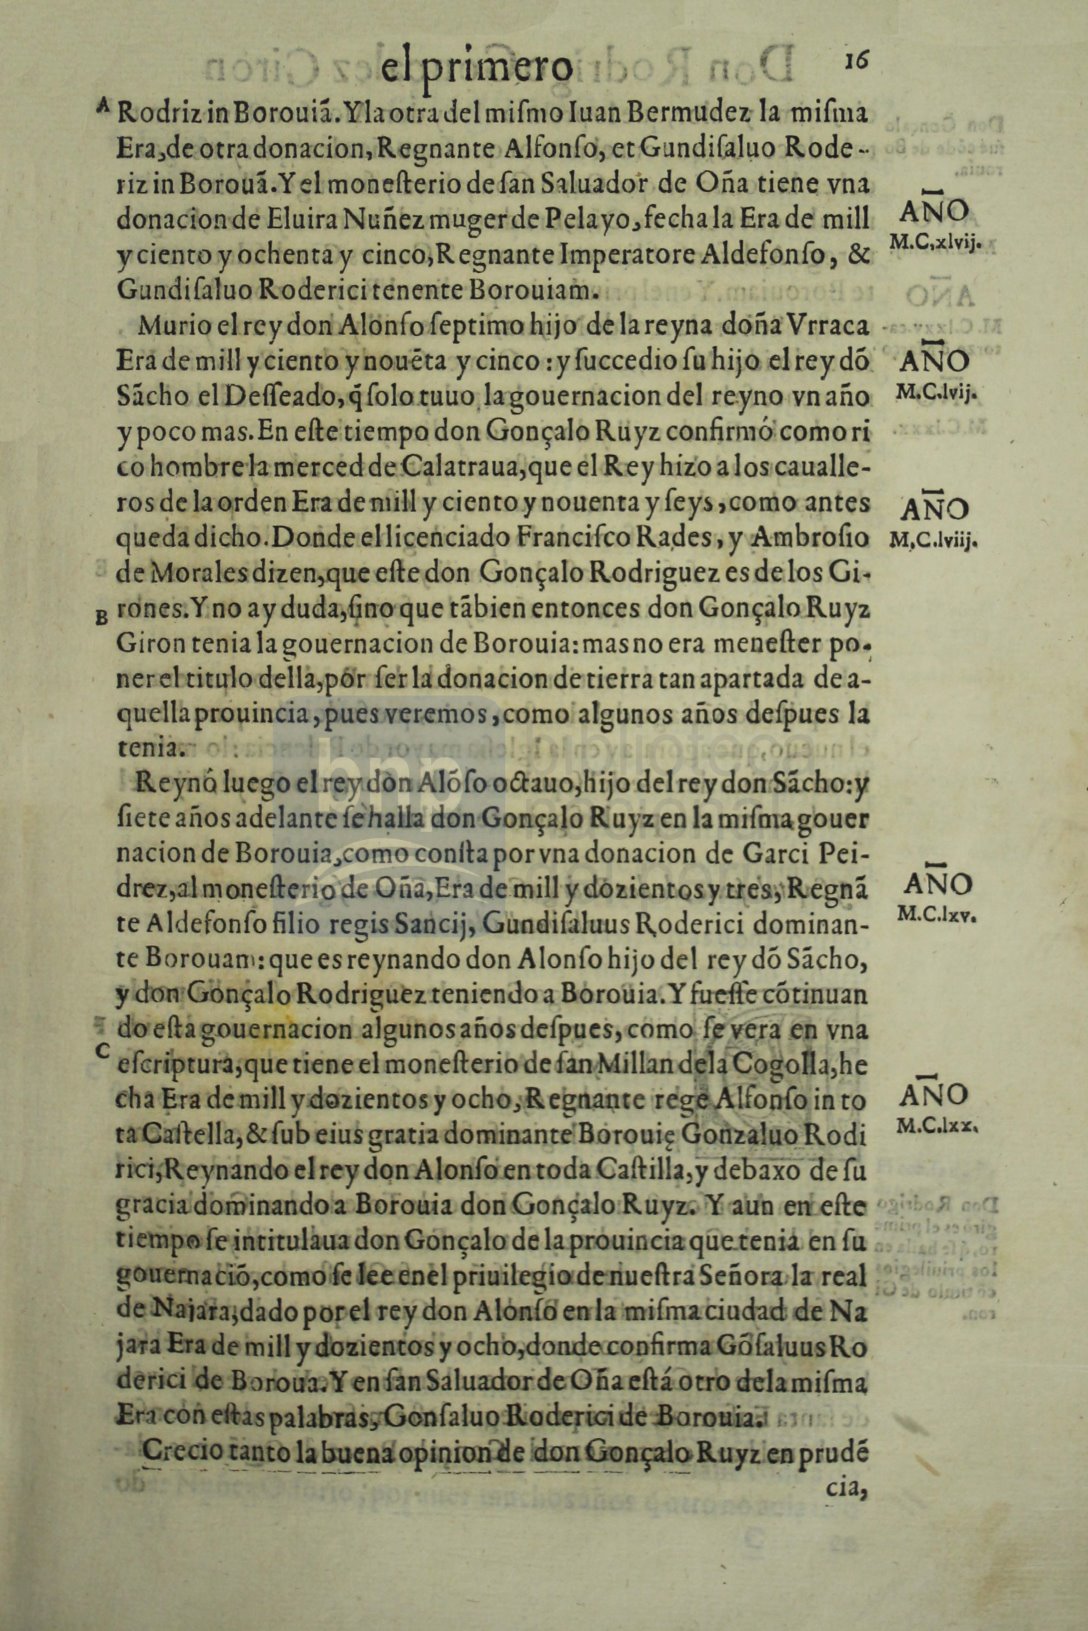 el primero
16
A Rodriz in Borouiã. Y la otra del miſmo Iuan Bermudez la miſma
Era, de otra donacion, Regnante Alfonſo, et Gundiſaluo Rode-
riz in Borouã. Y el moneſterio de ſan Saluador de Oña tiene vna
donacion de Eluira Nuñez muger de Pelayo, fecha la Era de mill
AÑO
y ciento y ochenta y cinco, Regnante Imperatore Aldefonſo, &
M.C.xlvij.
Gundiſaluo Roderici tenente Borouiam.
Murio el rey don Alonſo ſeptimo hijo de la reyna doña Vrraca
Era de mill y ciento y nouẽta y cinco: y ſuccedio ſu hijo el rey dõ
AÑO
Sãcho el Deſſeado, q̃ ſolo tuuo la gouernacion del reyno vn año
M.C.lvij.
y poco mas. En eſte tiempo don Gonçalo Ruyz confirmó como ri
co hombre la merced de Calatraua, que el Rey hizo a los caualle-
ros de la orden Era de mill y ciento y nouenta y ſeys, como antes
AÑO
queda dicho. Donde el licenciado Franciſco Rades, y Ambroſio
M.C.lviij.
de Morales dizen, que eſte don Gonçalo Rodriguez es de los Gi-
B rones. Y no ay duda, ſino que tãbien entonces don Gonçalo Ruyz
Giron tenia la gouernacion de Borouia: mas no era meneſter po-
ner el titulo della, por ſer la donacion de tierra tan apartada de a-
quella prouincia, pues veremos, como algunos años deſpues la
tenia.
Reynó luego el rey don Alõſo octauo, hijo del rey don Sãcho: y
ſiete años adelante ſe halla don Gonçalo Ruyz en la miſma gouer
nacion de Borouia, como conſta por vna donacion de Garci Pei-
drez, al moneſterio de Oña, Era de mill y dozientos y tres, Regnã
AÑO
te Aldefonſo filio regis Sancij, Gundiſaluus Roderici dominan-
M.C.lxv.
te Borouam: que es reynando don Alonſo hijo del rey dõ Sãcho,
y don Gonçalo Rodriguez teniendo a Borouia. Y fueſſe cõtinuan
do eſta gouernacion algunos años deſpues, como ſe vera en vna
C eſcriptura, que tiene el moneſterio de ſan Millan dela Cogolla, he
cha Era de mill y dozientos y ocho, Regnante rege Alfonſo in to
AÑO
ta Caſtella, & ſub eius gratia dominante Borouię Gonzaluo Rodi
M.C.lxx.
rici, Reynando el rey don Alonſo en toda Caſtilla, y debaxo de ſu
gracia dominando a Borouia don Gonçalo Ruyz. Y aun en eſte
tiempo ſe intitulaua don Gonçalo de la prouincia que tenia en ſu
gouernaciõ, como ſe lee enel priuilegio de nueſtra Señora la real
de Najara, dado por el rey don Alonſo en la miſma ciudad de Na
jara Era de mill y dozientos y ocho, donde confirma Gõſaluus Ro
derici de Boroua. Y en ſan Saluador de Oña eſtá otro dela miſma
Era con eſtas palabras, Gonſaluo Roderici de Borouia.
Crecio tanto la buena opinion de don Gonçalo Ruyz en prudẽ
cia,